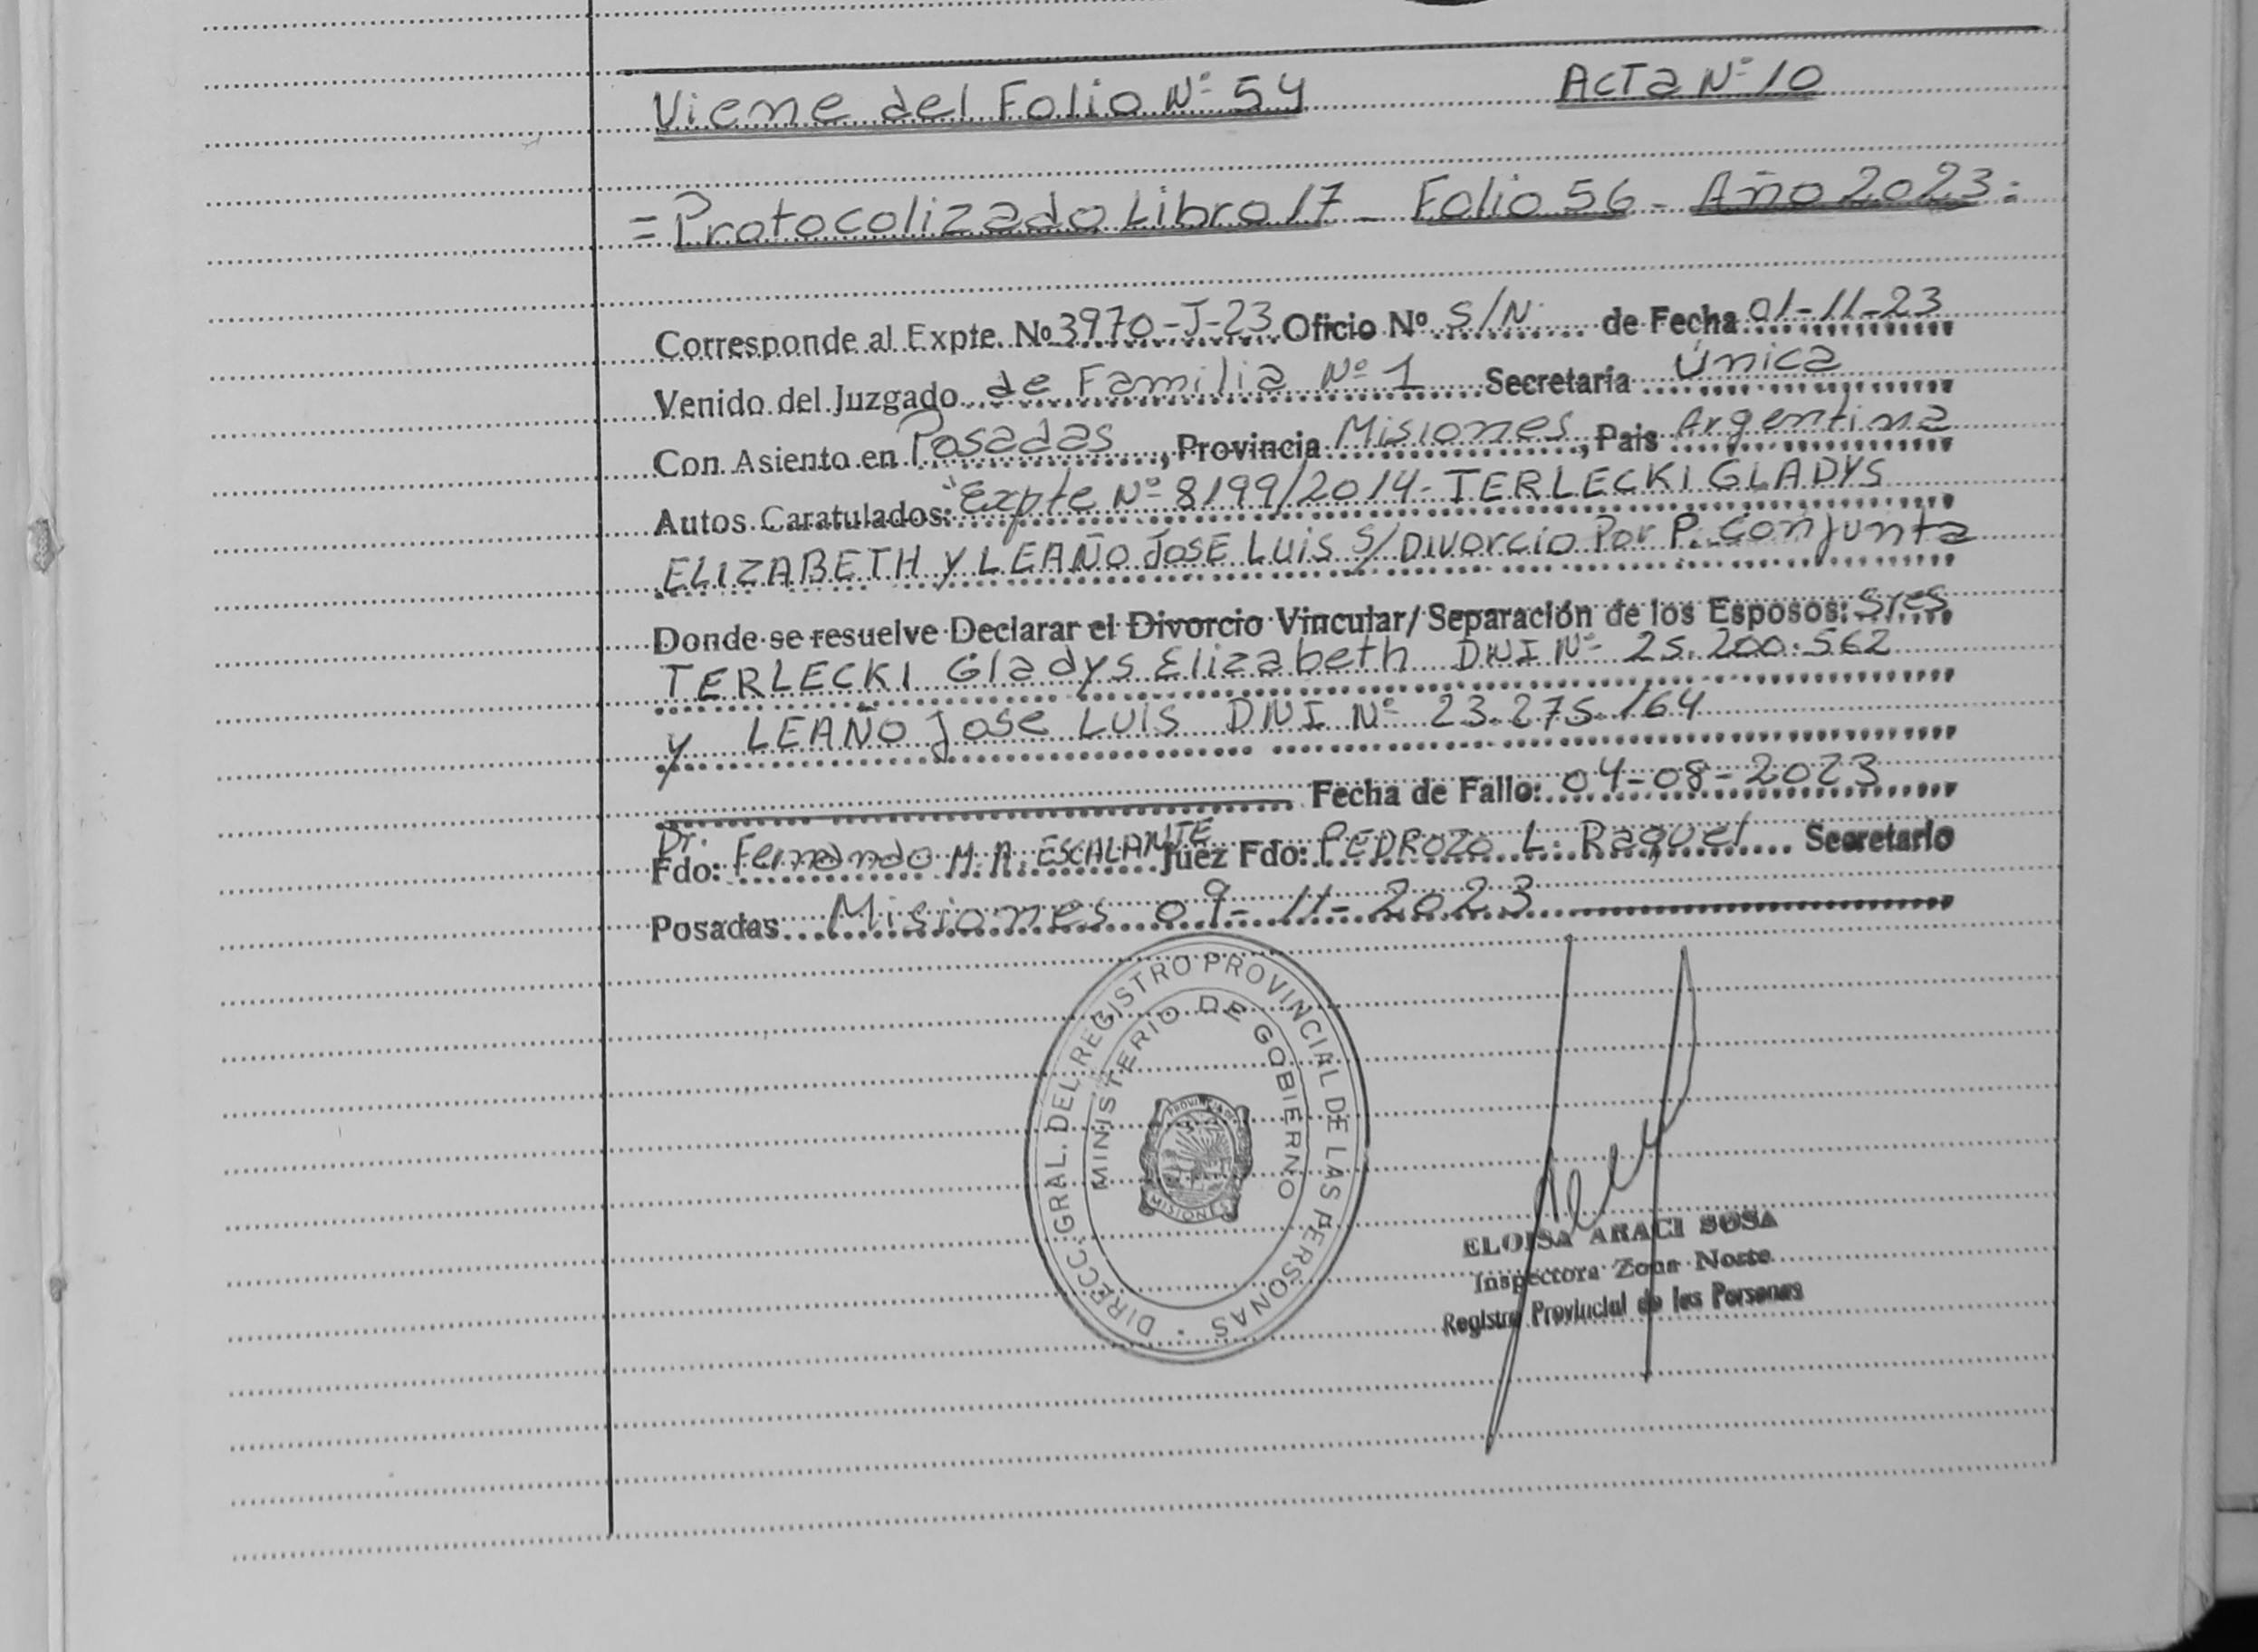 Viene del Folio Nº 54 Acta Nº 10
= Protocolizado Libro 17 - Folio 56 - Año 2023 =
Corresponde al Expte. Nº 3970-J-23 Oficio Nº S/N de Fecha 01-11-23
Venido del Juzgado de Familia Nº 1 Secretaría Única
Con Asiento en Posadas, Provincia Misiones, Pais Argentina
Autos Caratulados: "Expte Nº 8199/2014 - TERLECKI GLADYS
ELIZABETH Y LEAÑO JOSE LUIS S/ Divorcio Por P. Conjunta
Donde se resuelve Declarar el Divorcio Vincular/ Separación de los Esposos: Sres
TERLECKI Gladys Elizabeth DNI Nº 25.200.562
y LEAÑO Jose LUIS DNI Nº 23.275.164
Fecha de Fallo: 04-08-2023
Fdo: Dr. Fernando M. A. ESCALANTE Juez Fdo: PEDROZO L. Raquel Secretario
Posadas Misiones 09-11-2023
DIRECC. GRAL. DEL REGISTRO PROVINCIAL DE LAS PERSONAS
MINISTERIO DE GOBIERNO
PROVINCIA DE
MISIONES
ELOISA ARACI SOSA
Inspectora Zona Norte
Registro Provincial de las Personas